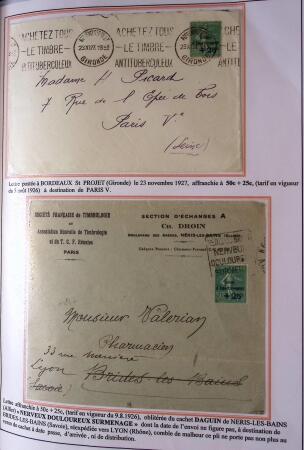 ACHETEZ TOUS
LE TIMBRE
ANTITUBERCULEUX
GIRONDE
ACHETEZ TOUS
LE TIMBRE
ANTITUBERCULEUX
GIRONDE
Madame H Picard
7 Rue de l'Epée de Bois
Paris V
(Seine)
Lettre postée à BORDEAUX St PROJET (Gironde) le 23 novembre 1927, affranchie à 50c + 25c, (tarif en vigueur
du 9 août 1926) à destination de PARIS V.
SOCIÉTÉ FRANÇAISE DE TIMBROLOGIE
Association Nouvelle de Timbrologie
et du T. C. F. Réunies
PARIS
SECTION D'ÉCHANGES A
CH. DROIN
BOULEVARD DES NÉRIS-LES-BAINS
NERVEUX
DOULOUR
+25c
Monsieur Valerian
Pharmacien
33 rue
Lyon Brides les Bains
Savoie
Lettre affranchie à 50c + 25c, (tarif en vigueur du 9.8.1926), oblitérée du cachet DAGUIN de NERIS-LES-BAINS
(Allier) « NERVEUX DOULOUREUX SURMENAGE » dont la date de l'envoi ne figure pas, à destination de
BRIDES-LES-BAINS (Savoie), réexpédiée vers LYON (Rhône), comble de malheur ce pli ne porte pas non plus au
verso de cachet à date passe, d'arrivée, ni de distribution.